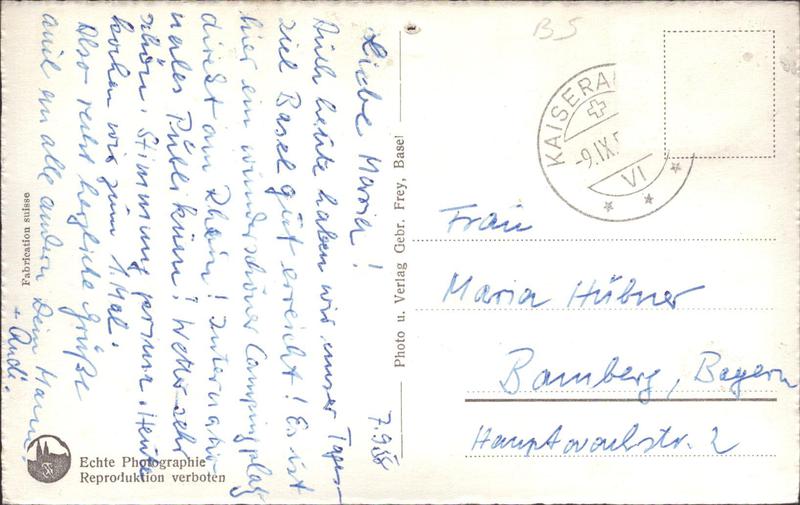 Liebe Maria!
Auch heute haben wir unser Tages-
ziel Basel gut erreicht! Es ist
hier ein wunderschöner Campingplatz
direkt am Rhein! Internatio-
nales Publikum! Wetter sehr
schön. Stimmung prima. Heute
kochen wir zum 1. Mal.
Also recht herzliche Grüße
auch an alle andern Dein Mann
+ Rudi.
7.9.58
Fabrication suisse
Echte Photographie
Reproduktion verboten
Photo u. Verlag Gebr. Frey, Basel
BS
KAISERA
-9.IX.5
VI
Frau
Maria Hübner
Bamberg, Bayern
Hauptwachstr. 2